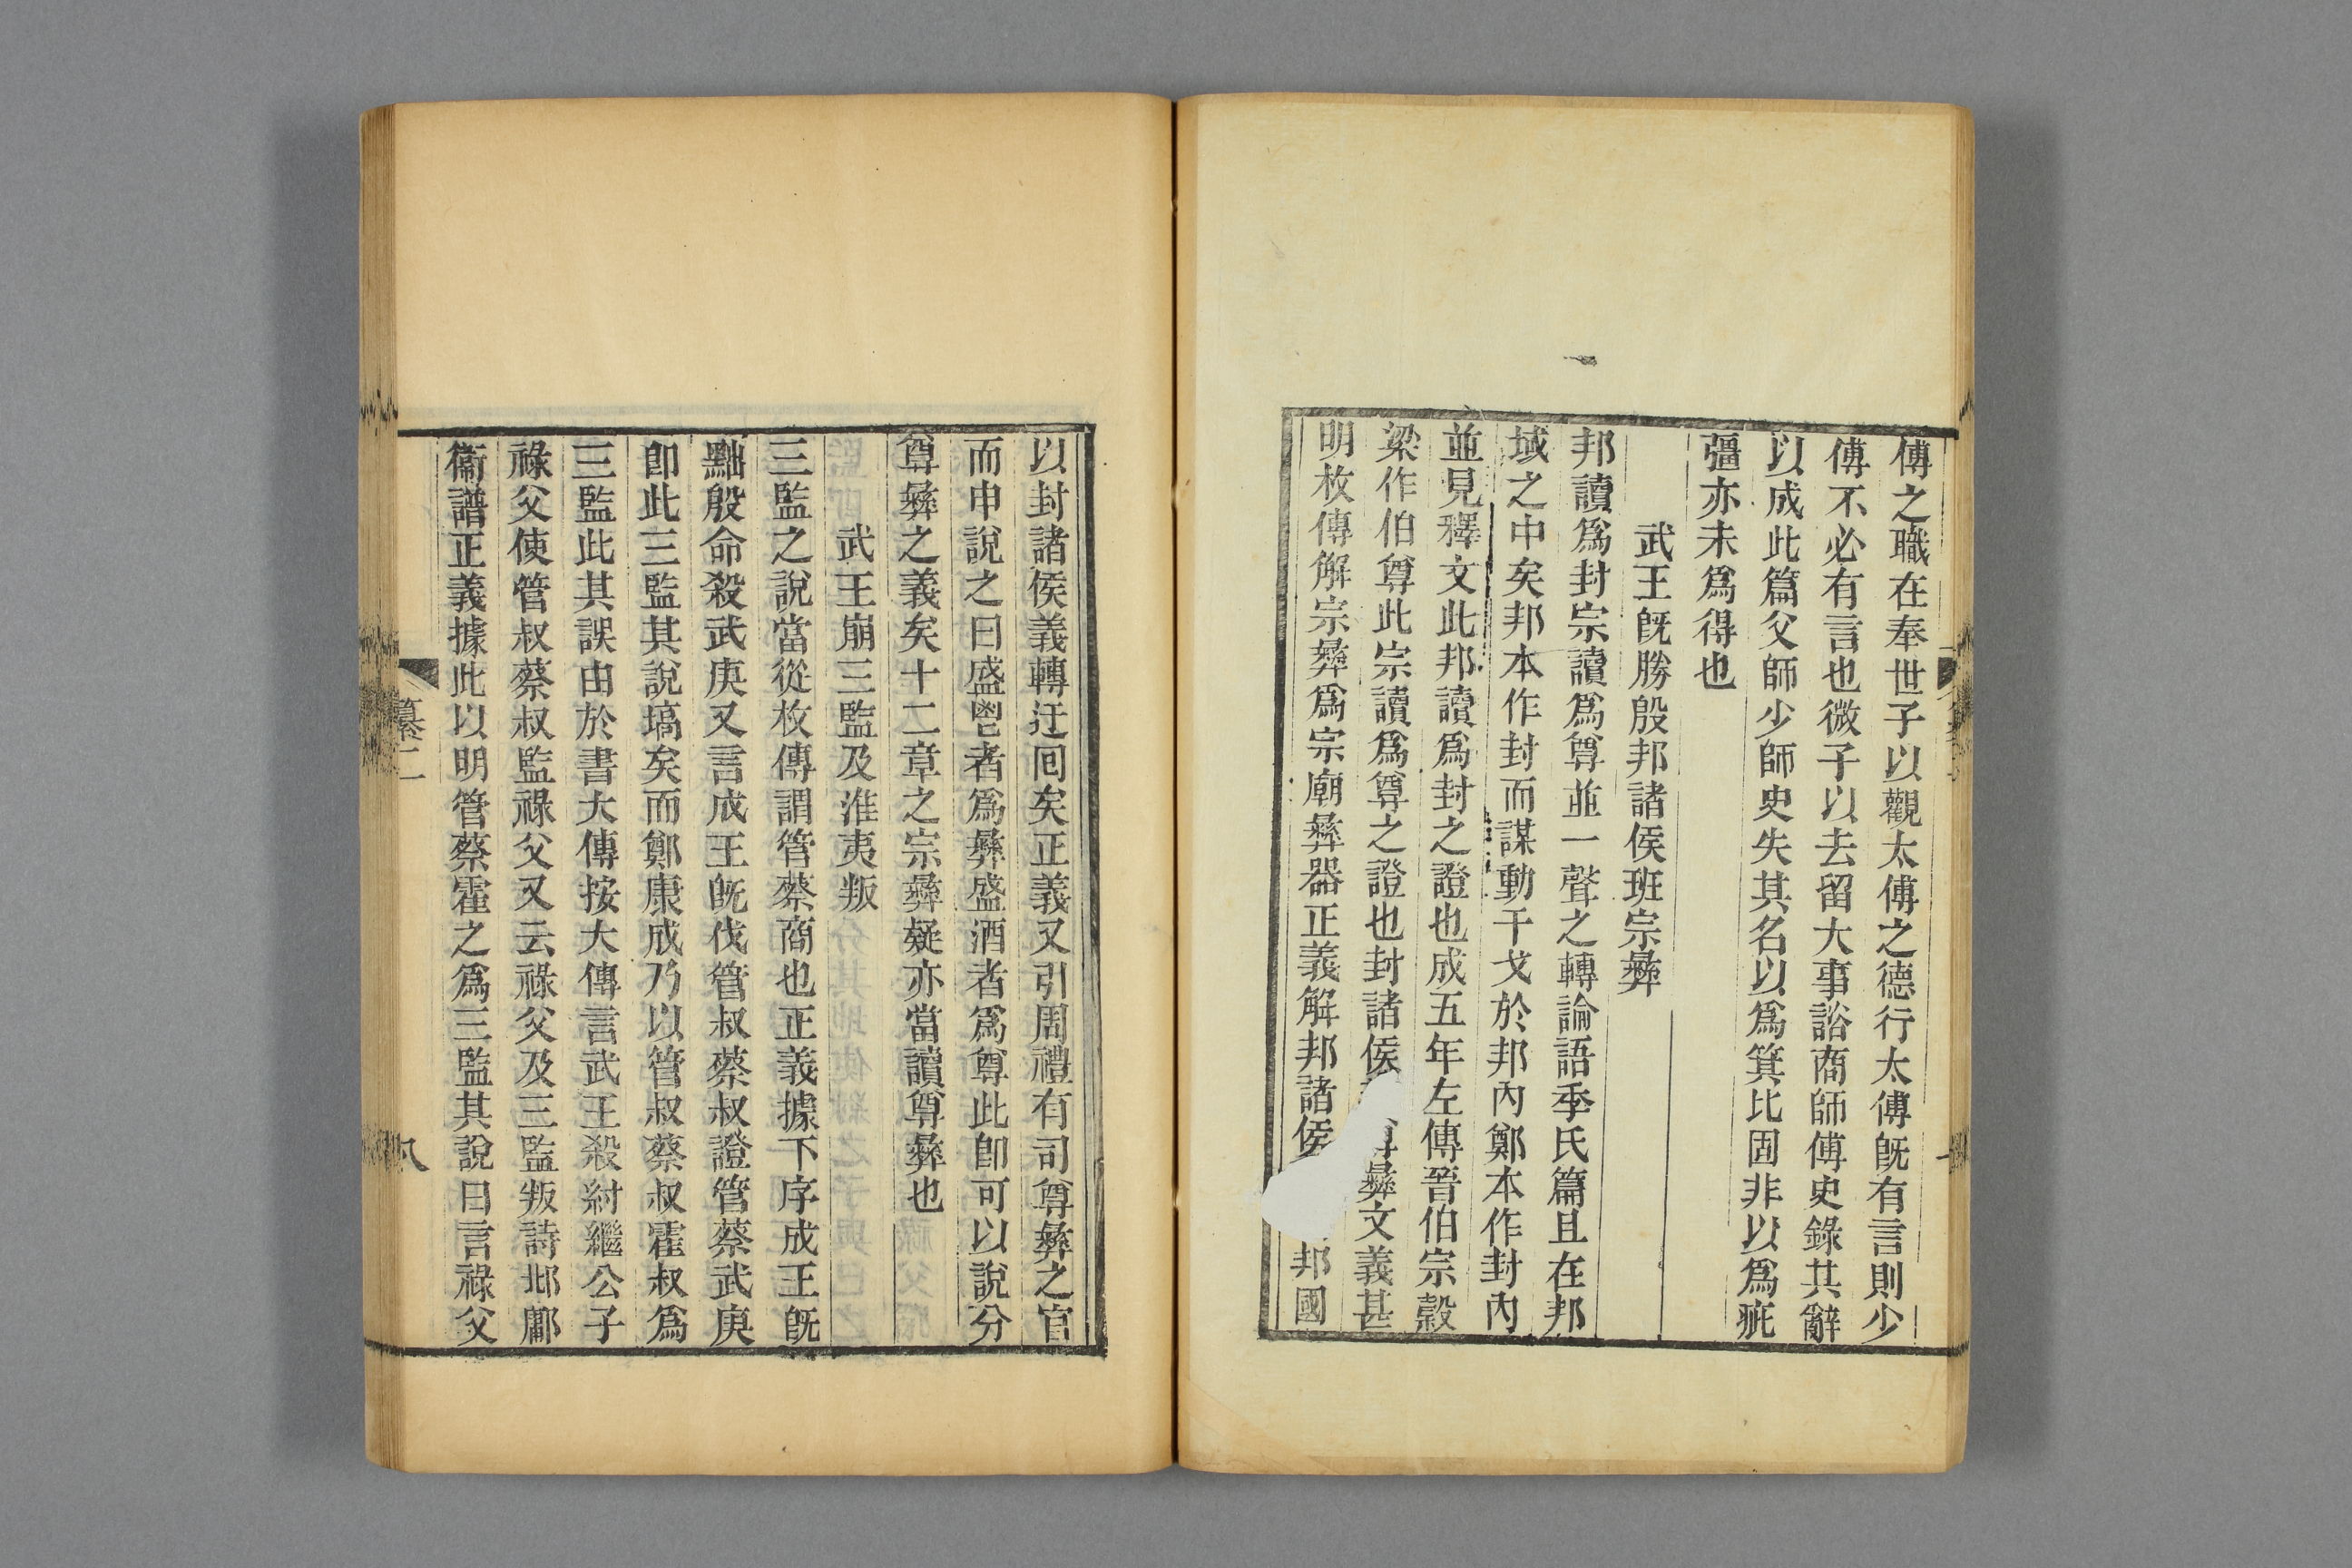 傅之職在奉世子以觀太傅之德行太傅旣有言則少
傅不必有言也微子以去留大事諮商師傅史錄其辭
以成此篇父師少師史失其名以爲箕比固非以爲疵
彊亦未爲得也
武王旣勝殷邦諸侯班宗彝
邦讀爲封宗讀爲尊並一聲之轉論語季氏篇且在邦
域之中矣邦本作封而謀動干戈於邦內鄭本作封內
並見釋文此邦讀爲封之證也成五年左傳晉伯宗穀
梁作伯尊此宗讀爲尊之證也封諸侯尊彝文義甚
明枚傳解宗彝爲宗廟彝器正義解邦諸侯邦國
以封諸侯義轉迂囘矣正義又引周禮有司尊彝之官
而申說之曰盛鬯者爲彝盛酒者爲尊此卽可以說分
尊彝之義矣十二章之宗彝疑亦當讀尊彝也
武王崩三監及淮夷叛
三監之說當從枚傳謂管蔡商也正義據下序成王旣
黜殷命殺武庚又言成王旣伐管叔蔡叔證管蔡武庚
卽此三監其說塙矣而鄭康成乃以管叔蔡叔霍叔爲
三監此其誤由於書大傳按大傳言武王殺紂繼公子
祿父使管叔蔡叔監祿父又云祿父及三監叛詩邶鄘
衞譜正義據此以明管蔡霍之爲三監其說曰言祿父
纂二
八